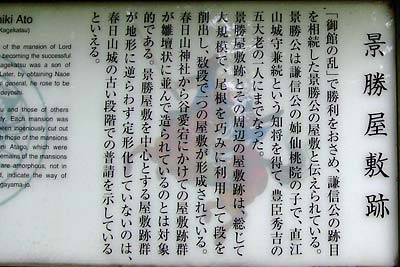 景勝屋敷跡
「御館の乱」で勝利をおさめ、謙信公の跡目
を相続した景勝公の屋敷と伝えられている。
景勝公は謙信公の姉仙桃院の子で、直江
山城守兼続という知将を得て、豊臣秀吉の
五大老の一人にまでなった。
景勝屋敷跡とその周辺の屋敷跡は、総じて
大規模で、尾根を巧みに利用して段を
削出し、数段で一つの屋敷が形成されている。
春日山神社から谷愛宕にかけての屋敷跡
が雛壇状に並んで造られているのとは対象
的である。景勝屋敷を中心とする屋敷跡群
が地形に逆らわず定形化していないのは、
春日山城の古い段階での普請を示している
といえる。
hiki Ato
Kagekatsu)
of the mansion of Lord
becoming the successful
agekatsu was a son of
Later, by obtaining Naoe
general, he rose to be
deyoshi.
and those of others
ely. Each mansion was
een ingeniously cut out
th those of the mansions
ni Atago, which were
emains of the mansions
are amorphous, not in
d, indicate the way of
gayama-jo.